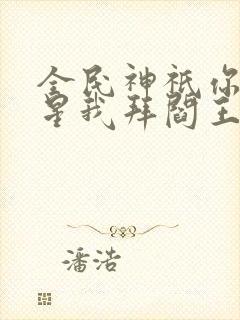 全民神祇你
星我拜阎王
潘浩